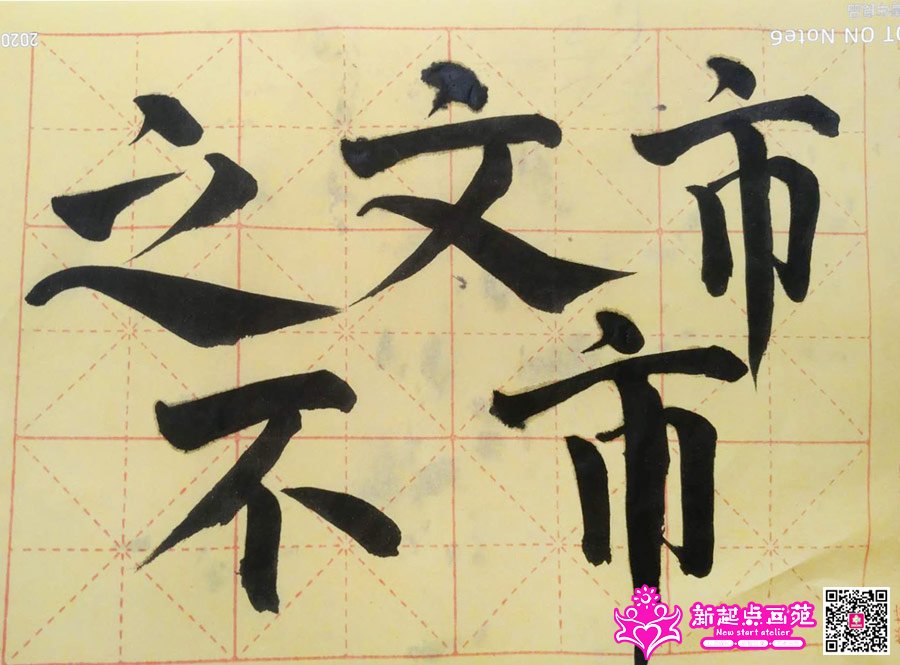 2020
OT ON Note6
之 文 市
不 市
新起点画苑
New start atelier